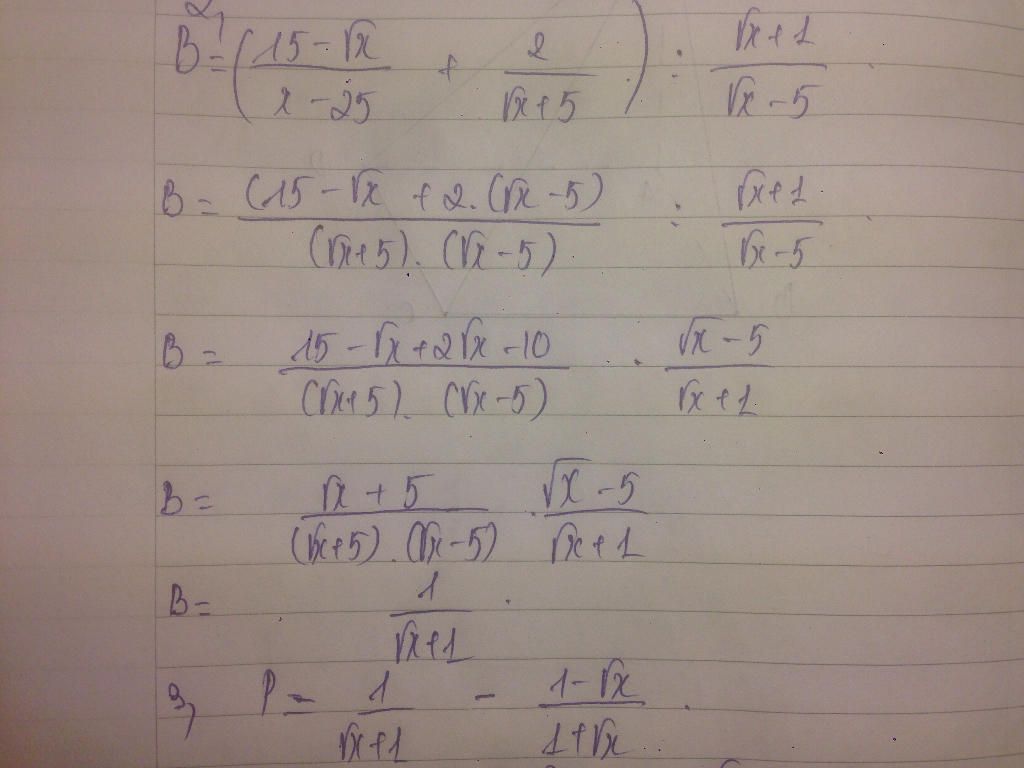 2,
B = ( (15 - √x)/(x - 25) + 2/(√x + 5) ) : (√x + 1)/(√x - 5) .
B = ((15 - √x + 2.(√x - 5))/((√x + 5) . (√x - 5)) : (√x + 1)/(√x - 5) .
B = (15 - √x + 2√x - 10)/((√x + 5) . (√x - 5)) . (√x - 5)/(√x + 1)
B = (√x + 5)/((√x + 5) . (√x - 5)) . (√x - 5)/(√x + 1)
B = 1/(√x + 1) .
3, P = 1/(√x + 1) - (1 - √x)/(1 + √x) .